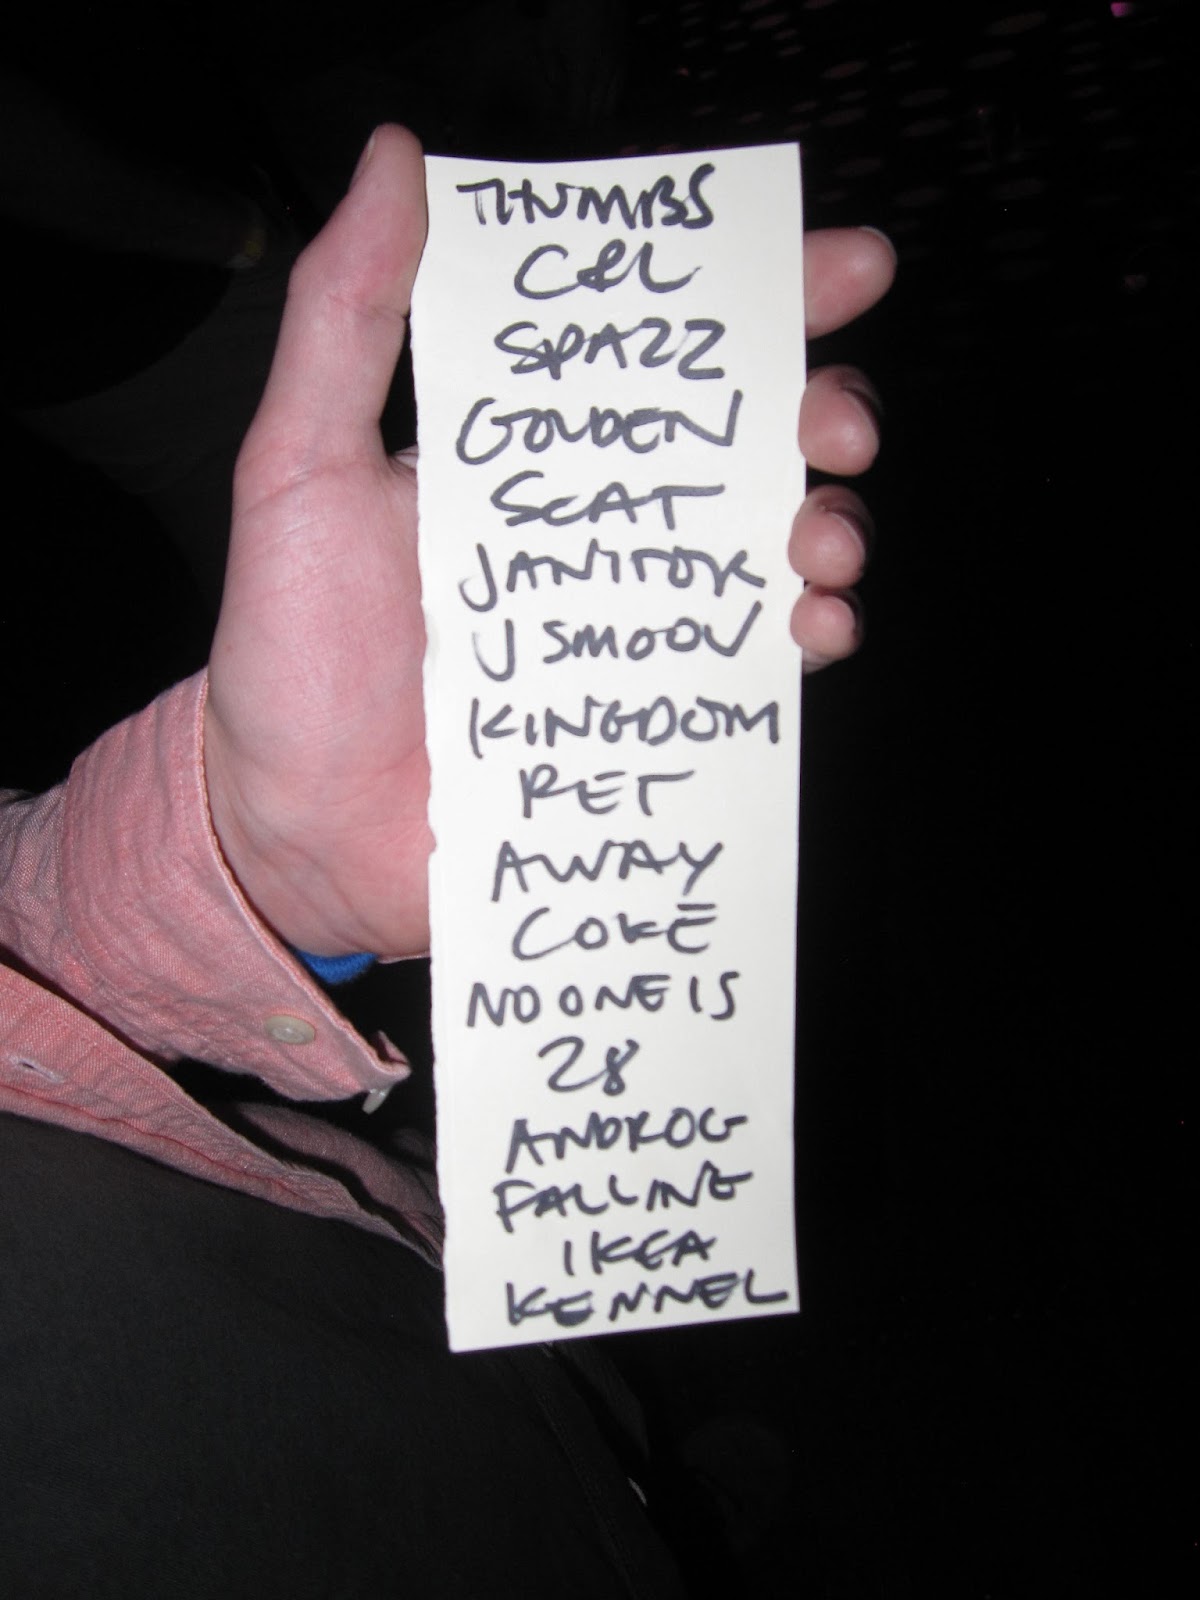 THUMBS
C&L
SPAZZ
GOLDEN
SCAT
JANITOR
J SMOOV
KINGDOM
RET
AWAY
COKE
NO ONE IS
28
ANDROG
FALLING
IKEA
KENNEL